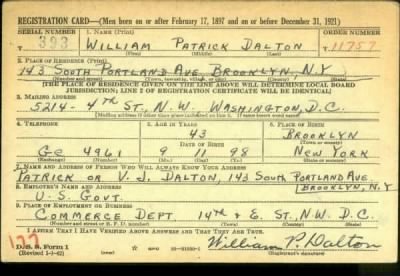 REGISTRATION CARD—(Men born on or after February 17, 1897 and on or before December 31, 1921)
SERIAL NUMBER 1. NAME (Print) ORDER NUMBER
393 WILLIAM PATRICK DALTON 11757
(First) (Middle) (Last)
2. PLACE OF RESIDENCE (Print)
143 SOUTH PORTLAND AVE BROOKLYN, N.Y
(Number and street) (Town, township, village, or city) (County) (State)
[THE PLACE OF RESIDENCE GIVEN ON THE LINE ABOVE WILL DETERMINE LOCAL BOARD
JURISDICTION; LINE 2 OF REGISTRATION CERTIFICATE WILL BE IDENTICAL]
3. MAILING ADDRESS
5214- 4TH ST., N.W. WASHINGTON, D.C.
[Mailing address if other than place indicated on line 2. If same insert word same]
4. TELEPHONE 5. AGE IN YEARS 6. PLACE OF BIRTH
43 BROOKLYN
DATE OF BIRTH (Town or county)
GE 4961 9 11 98 NEW YORK
(Exchange) (Number) (Mo.) (Day) (Yr.) (State or country)
7. NAME AND ADDRESS OF PERSON WHO WILL ALWAYS KNOW YOUR ADDRESS
PATRICK OR V. J. DALTON, 143 SOUTH PORTLAND AVE.
BROOKLYN, N.Y
8. EMPLOYER'S NAME AND ADDRESS
U. S. GOVT.
9. PLACE OF EMPLOYMENT OR BUSINESS
COMMERCE DEPT. 14TH & E. ST., N.W. D.C.
(Number and street or R. F. D. number) (Town) (County) (State)
I AFFIRM THAT I HAVE VERIFIED ABOVE ANSWERS AND THAT THEY ARE TRUE.
D. S. S. Form 1
(Revised 1-1-42) GPO William P. Dalton
(Registrant's signature)